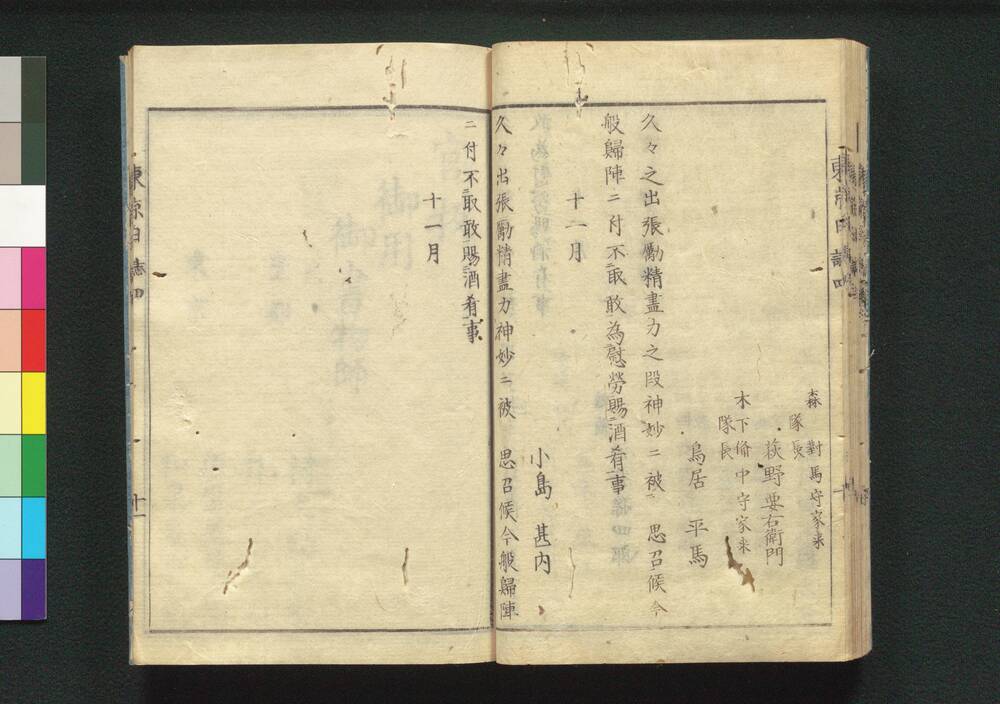 森 對馬守家来
隊長
荻野要右衛門
木下備中守家来
隊長
鳥居 平馬
久々之出張勵精盡力之段神妙ニ被 思召候今
般歸陣ニ付不取敢為慰勞賜酒肴事
十一月
小島 甚内
久々出張勵精盡力神妙ニ被 思召候今般歸陣
ニ付不取敢賜酒肴事
十一月
東京日誌四
十一